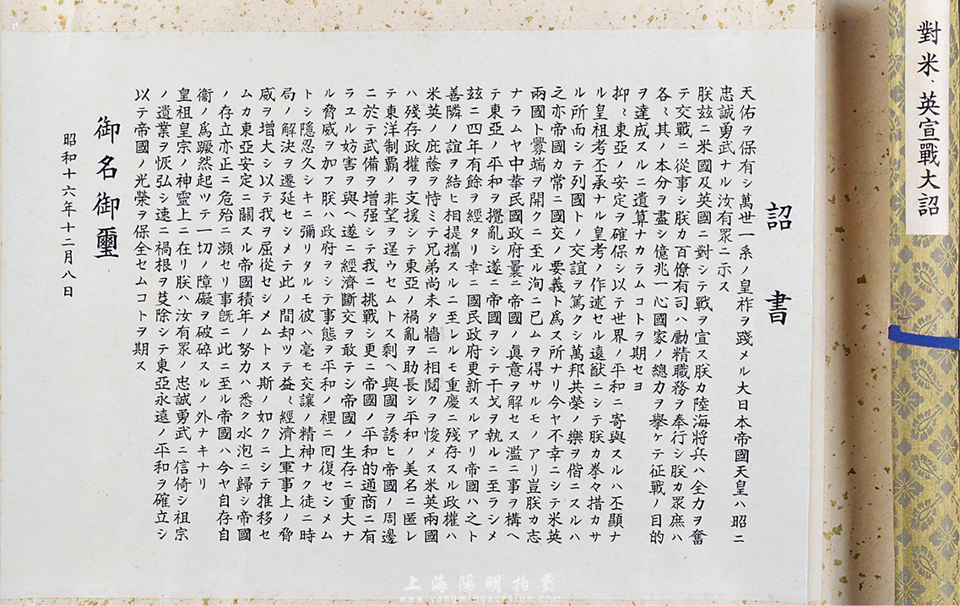 對米、英宣戰大詔
詔書
天佑ヲ保有シ萬世一系ノ皇祚ヲ踐メル大日本帝國天皇ハ昭ニ
忠誠勇武ナル汝有眾ニ示ス
朕玆ニ米國及英國ニ對シテ戰ヲ宣ス朕カ陸海將兵ハ全力ヲ奮
テ交戰ニ從事シ朕カ百僚有司ハ勵精職務ヲ奉行シ朕カ眾庶ハ
各〻其ノ本分ヲ盡シ億兆一心國家ノ總力ヲ擧ケテ征戰ノ目的
ヲ達成スルニ遺算ナカラムコトヲ期セヨ
抑〻東亞ノ安定ヲ確保シ以テ世界ノ平和ニ寄與スルハ丕顯ナ
ル皇祖考丕承ナル皇考ノ作述セル遠猷ニシテ朕カ拳々措カサ
ル所而シテ列國トノ交誼ヲ篤クシ萬邦共榮ノ樂ヲ偕ニスルハ
之亦帝國カ常ニ國交ノ要義ト爲ス所ナリ今ヤ不幸ニシテ米英
兩國ト釁端ヲ開クニ至ル洵ニ已ムヲ得サルモノアリ豈朕カ志
ナラムヤ中華民國政府曩ニ帝國ノ眞意ヲ解セス濫ニ事ヲ構ヘ
テ東亞ノ平和ヲ攪亂シ遂ニ帝國ヲシテ干戈ヲ執ルニ至ラシメ
玆ニ四年有餘ヲ經タリ幸ニ國民政府更新スルアリ帝國ハ之ト
善隣ノ誼ヲ結ヒ相提攜スルニ至レルモ重慶ニ残存スル政權ハ
米英ノ庇蔭ヲ恃ミテ兄弟尚未タ牆ニ相鬩クヲ悛メス米英兩國
ハ残存政權ヲ支援シテ東亞ノ禍亂ヲ助長シ平和ノ美名ニ匿レ
テ東洋制覇ノ非望ヲ逞ウセムトス剩ヘ與國ヲ誘ヒ帝國ノ周邊
ニ於テ武備ヲ增强シテ我ニ挑戰シ更ニ帝國ノ平和的通商ニ有
ラユル妨害ヲ與ヘ遂ニ經濟斷交ヲ敢テシ帝國ノ生存ニ重大ナ
ル脅威ヲ加フ朕ハ政府ヲシテ事態ヲ平和ノ裡ニ回復セシメム
トシ隱忍久シキニ彌リタルモ彼ハ毫モ交讓ノ精神ナク徒ニ時
局ノ解決ヲ遷延セシメテ此ノ間却ツテ益〻經濟上軍事上ノ脅
威ヲ增大シ以テ我ヲ屈從セシメムトス斯ノ如クニシテ推移セ
ムカ東亞安定ニ關スル帝國積年ノ努力ハ悉ク水泡ニ歸シ帝國
ノ存立亦正ニ危殆ニ瀕セリ事既ニ此ニ至ル帝國ハ今ヤ自存自
衞ノ爲蹶然起ツテ一切ノ障礙ヲ破碎スルノ外ナキナリ
皇祖皇宗ノ神靈上ニ在リ朕ハ汝有眾ノ忠誠勇武ニ信倚シ祖宗
ノ遺業ヲ恢弘シ速ニ禍根ヲ芟除シテ東亞永遠ノ平和ヲ確立シ
以テ帝國ノ光榮ヲ保全セムコトヲ期ス
御名御璽
昭和十六年十二月八日
上海陽明拍賣
www.yangmingauction.com